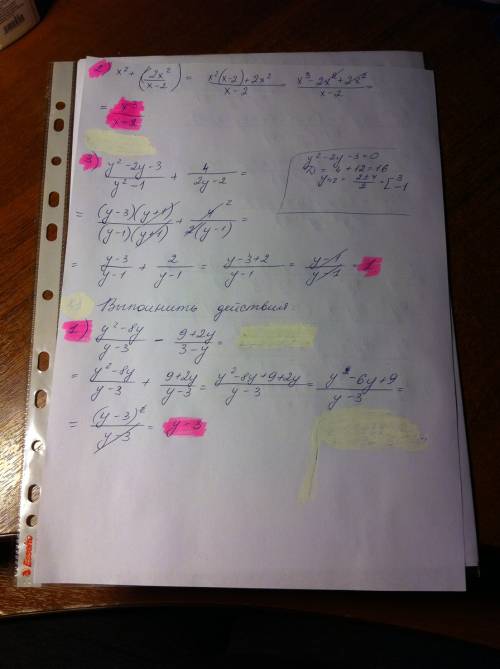 2) x² + (2x²/x-2) = x²(x-2)+2x²/x-2 = x³-2x²+2x²/x-2 =
= x³/x-2
3) y²-2y-3/y²-1 + 4/2y-2 =
y²-2y-3=0
D = 4+12=16
= (y-3)(y+1)/(y-1)(y+1) + 4²/2(y-1) =
= y-3/y-1 + 2/y-1 = y-3+2/y-1 = y-1/y-1 = 1
Выполнить действия:
1) y²-8y/y-3 - 9+2y/3-y =
= y²-8y/y-3 + 9+2y/y-3 = y²-8y+9+2y/y-3 = y²-6y+9/y-3 =
= (y-3)²/y-3 = y-3
Esselte